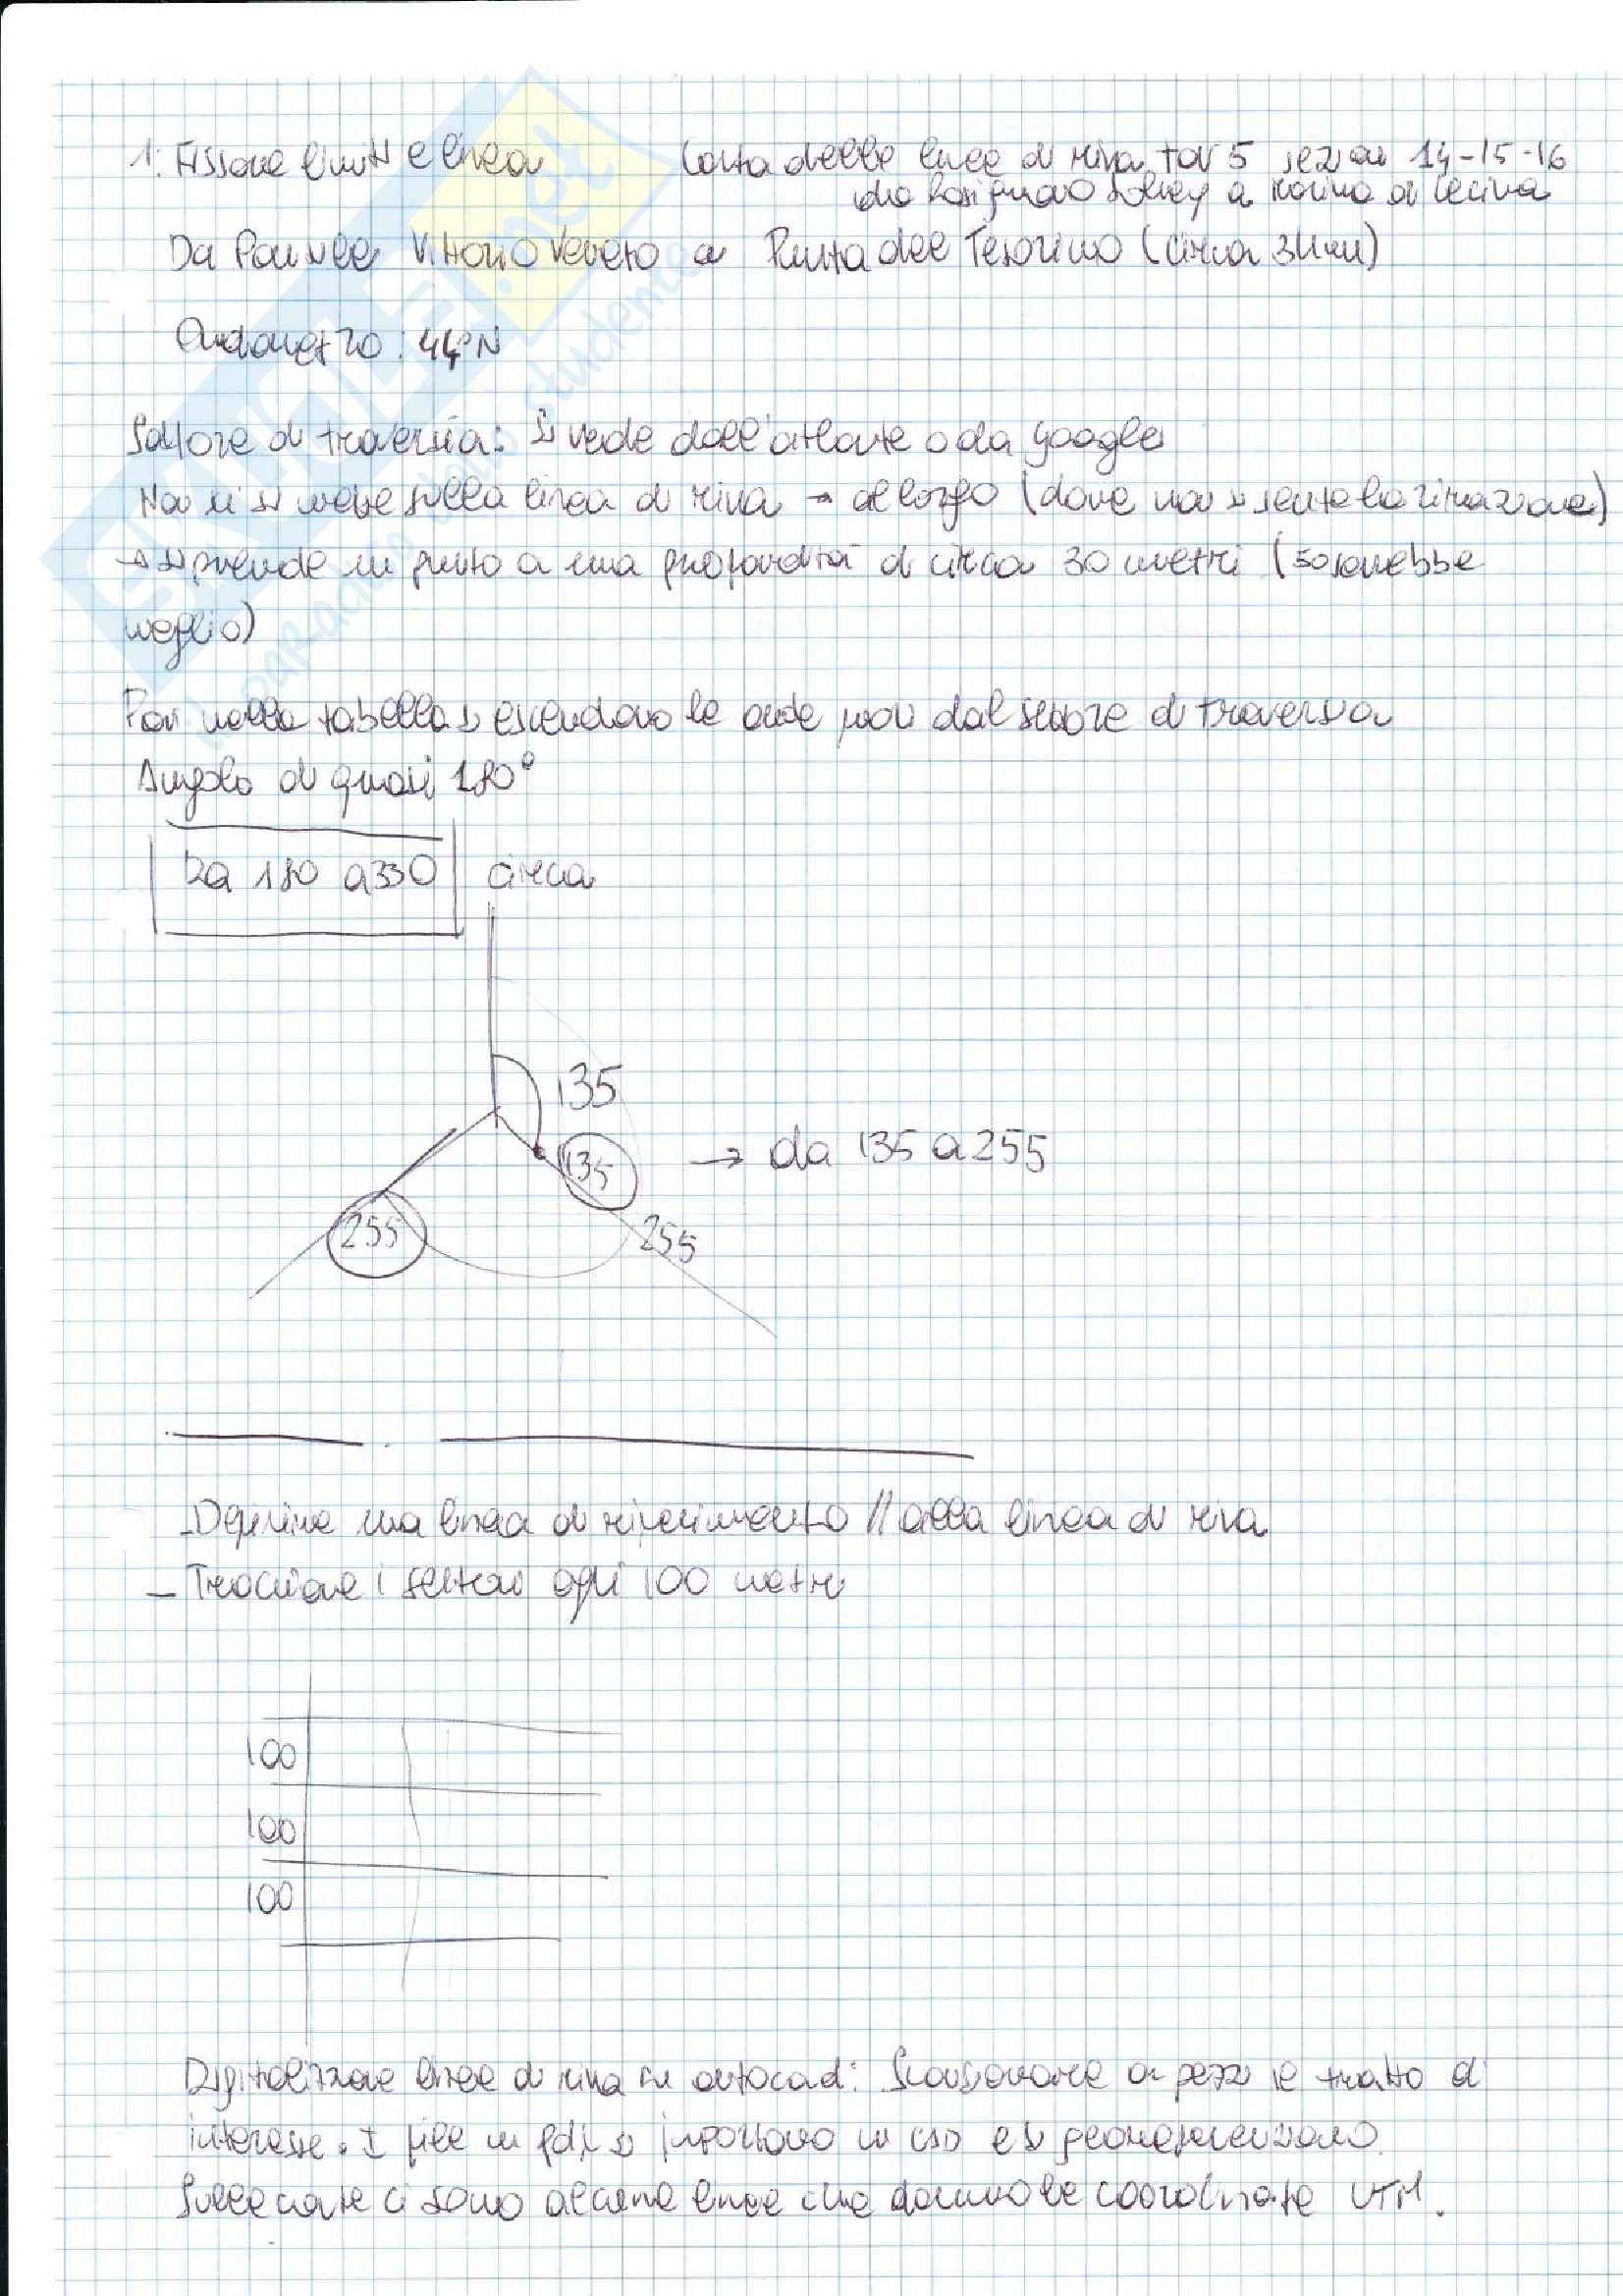 1. Fissare limiti e linea Carta delle linee di riva tav 5 sezioni 14-15-16
da Rosignano Solvay a Marina di Cecina
Da Vittorio Veneto a Punta del Tesorino (circa 3km)
Ondametro: 44°N
Settore di traversia: si vede dall'atlante o da google
Non ci si mette sulla linea di riva → al largo (dove non si sente la rifrazione)
→ si prende un punto a una profondità di circa 30 metri (50 sarebbe
meglio)
Poi nella tabella si escludono le onde fuori dal settore di traversia
Angolo di quasi 180°
Da 180 a 330 circa
135
135 → da 135 a 255
255 255
- Definire una linea di riferimento // alla linea di riva
- Tracciare i settori ogni 100 metri
100
100
100
Digitalizzare linee di riva su autocad: Scansionare a pezzi il tratto di
interesse. I file in pdf si importano in CAD e si georeferenziano.
Sulle carte ci sono alcune linee che danno le coordinate UTM.
SKUOLA.net
il paradiso dello studente